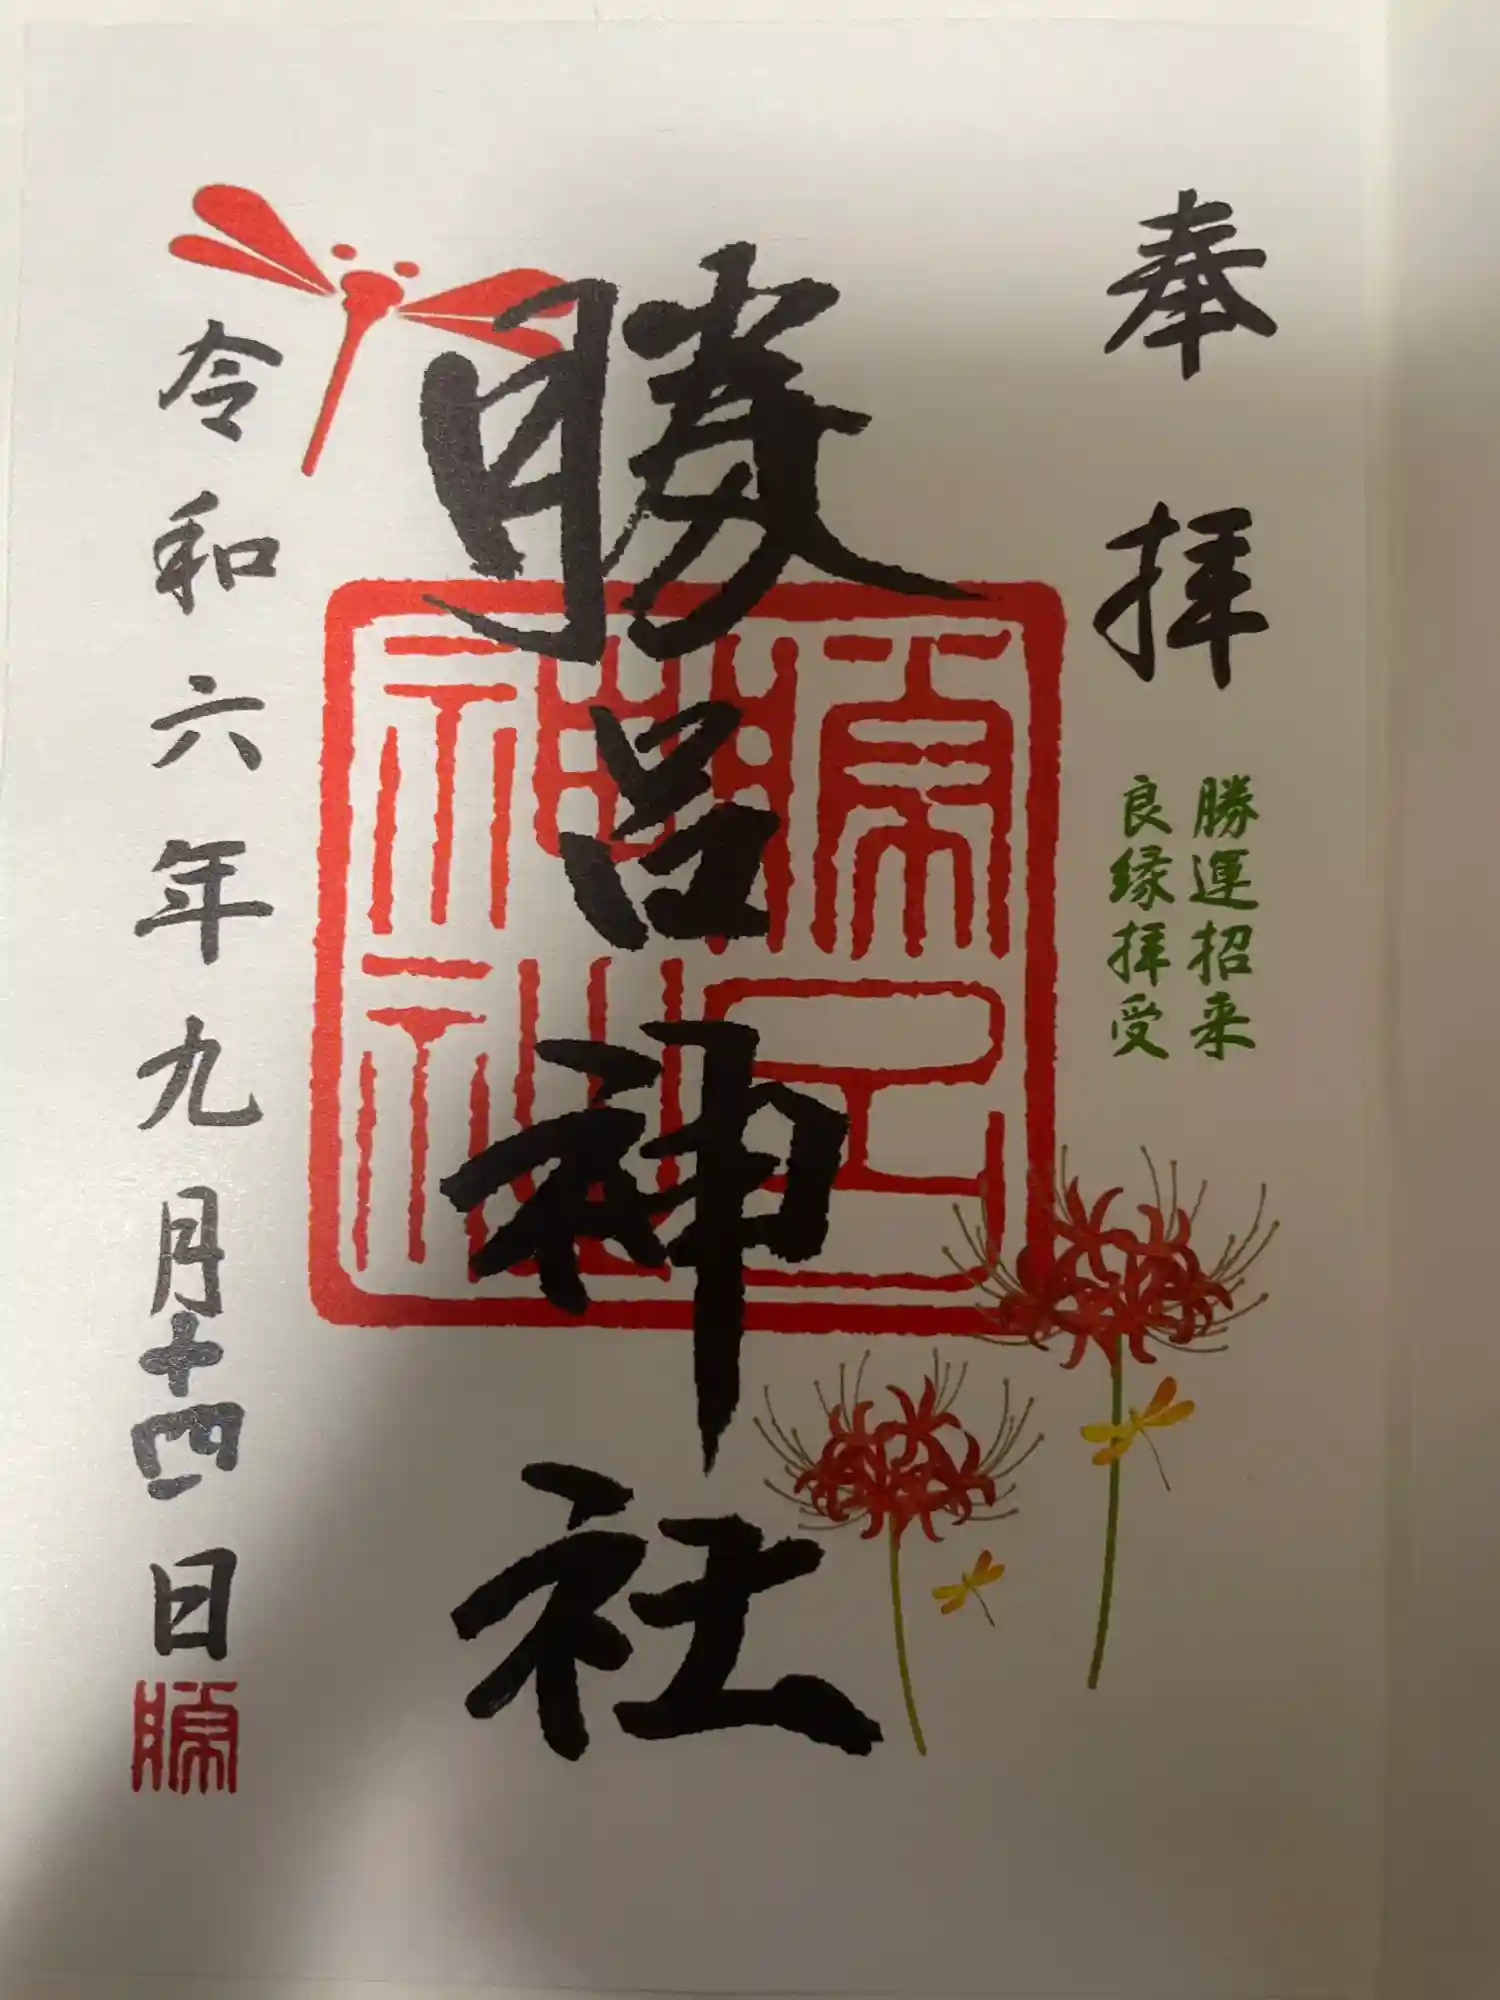 奉拝
勝運招来
良縁拝受
勝呂神社
令和六年九月十四日